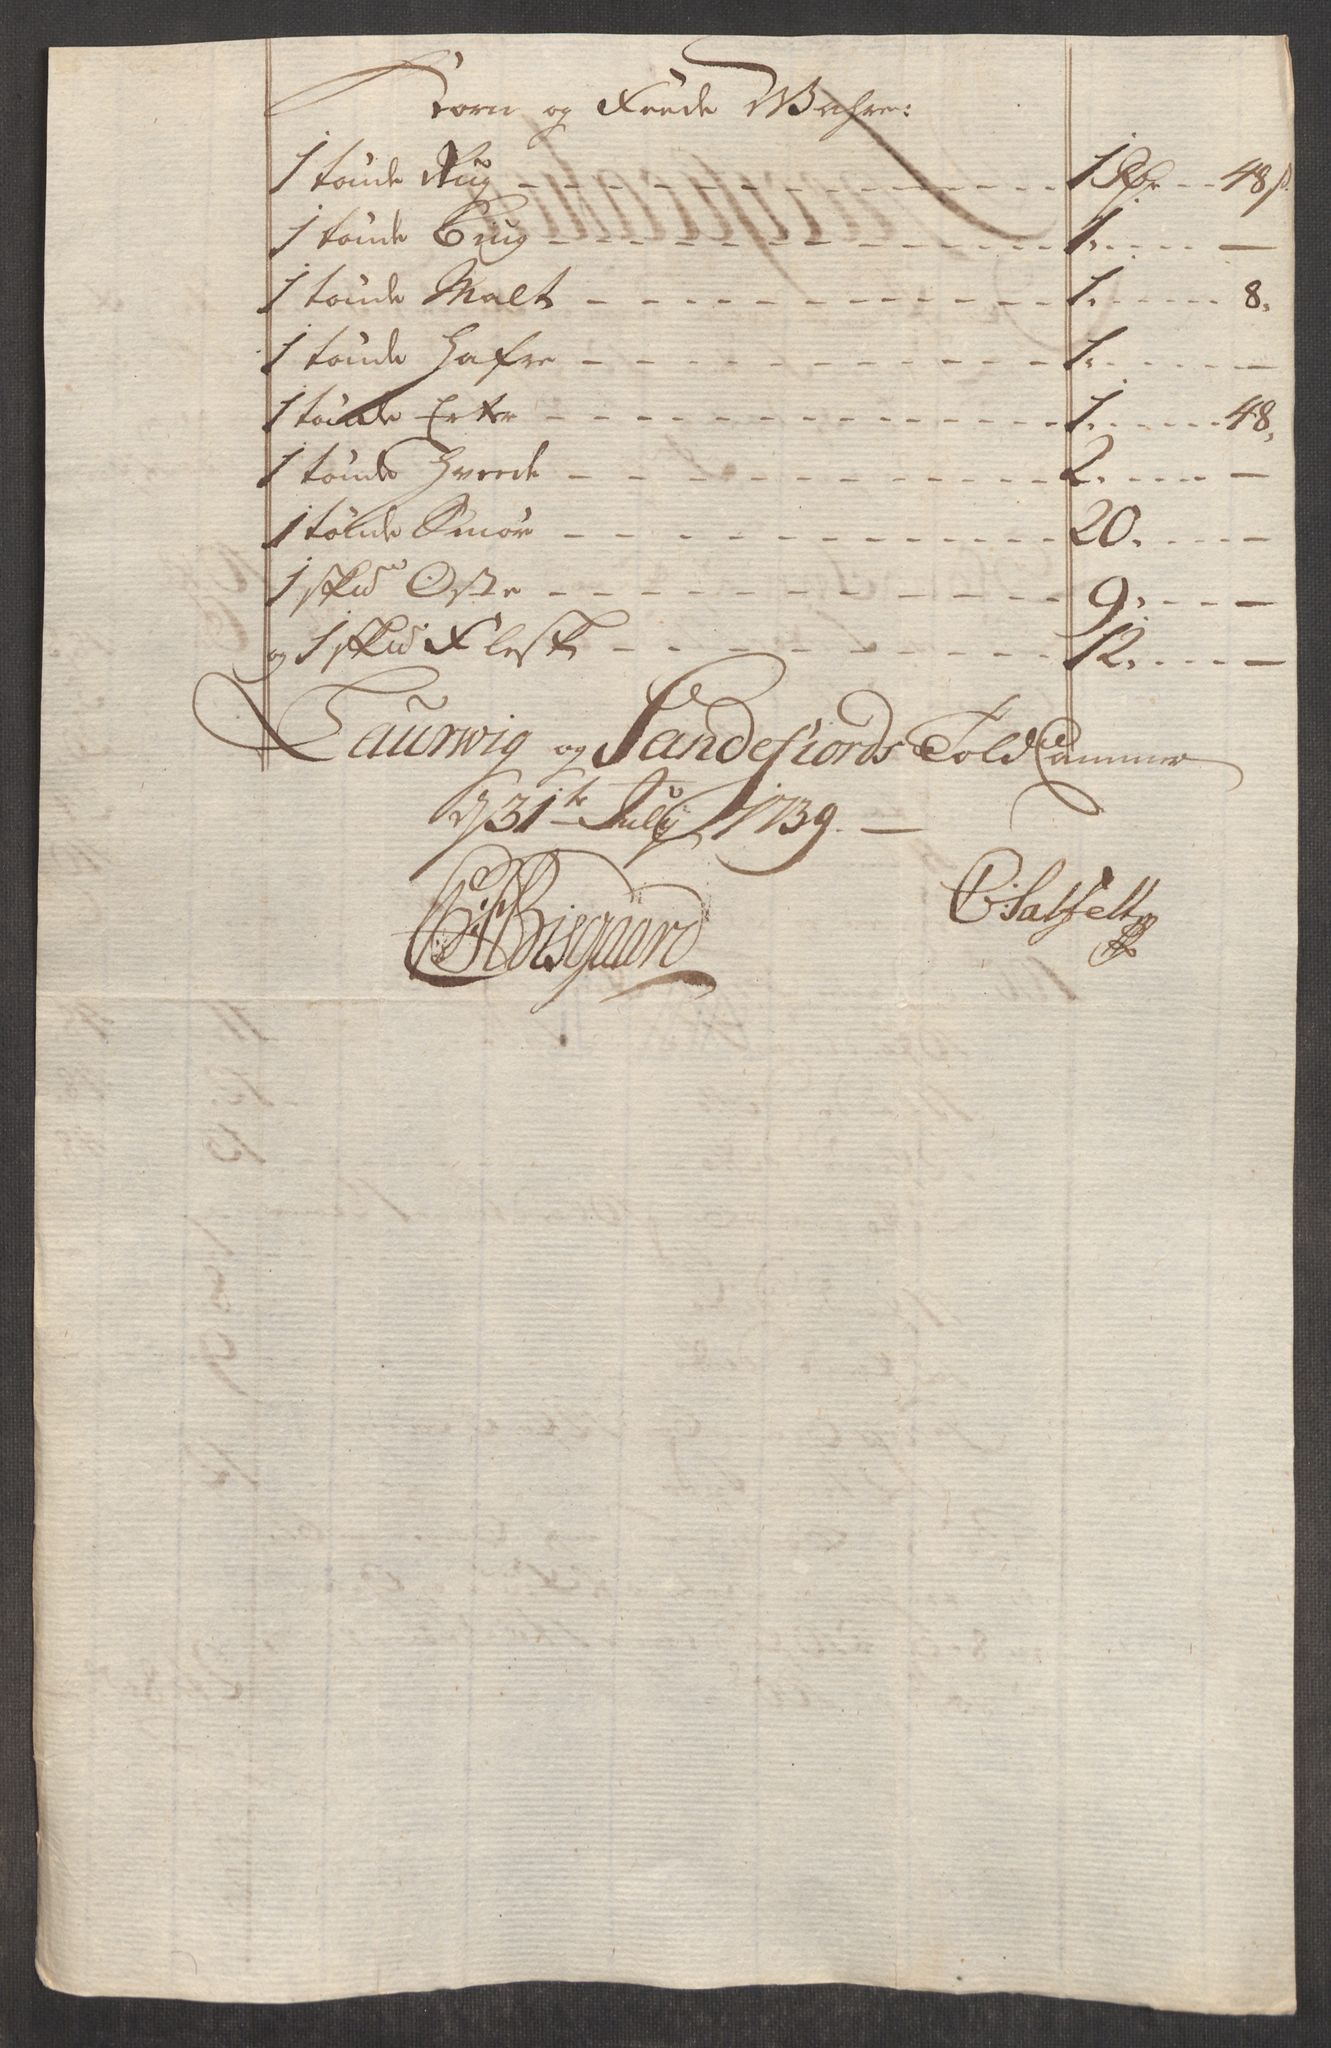 Korn og Feede Wahre:
1 tønde Rug - - - 1 Rdr - - 48 s.
1 tønde Biug - - - 1. - - —
1 tønde Malt - - - 1. - - 8.
1 tønde Hafre - - - 1. - - —
1 tønde Erter - - - 1. - - 48.
1 tønde Hveede - - - 2. - - —
1 tønde Smør - - - 20. - - —
1 skud Oste - - - 9. - - —
og 1 skud Flesk - - - 12. - - —
Laurwig og Sandefiords Told Cammer
d 31te July 1739. —
Bisgaard
C: Salfelt